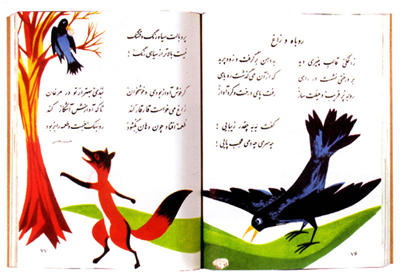 روباه و زاغ
زاغکی قالب پنیری دید به دهان برگرفت و زود پرید
بر درختی نشست در راهی که از آن می گذشت روباهی
روبه پر فریب و حیلت ساز رفت پای درخت و کرد آواز
گفت به به چقدر زیبایی !
چه سری چه دمی عجب پایی !
۷۶
پر و بالت سیاه رنگ و قشنگ
نیست بالاتر از سیاهی رنگ !
گر خوش آواز بودی و خوشخوان نبدی بهتر از تو در مرغان
زاغ می خواست قارقار کند تا که آوازش آشکار کند
طعمه افتاد چون دهان بگشود روبهک جست و طعمه را بربود